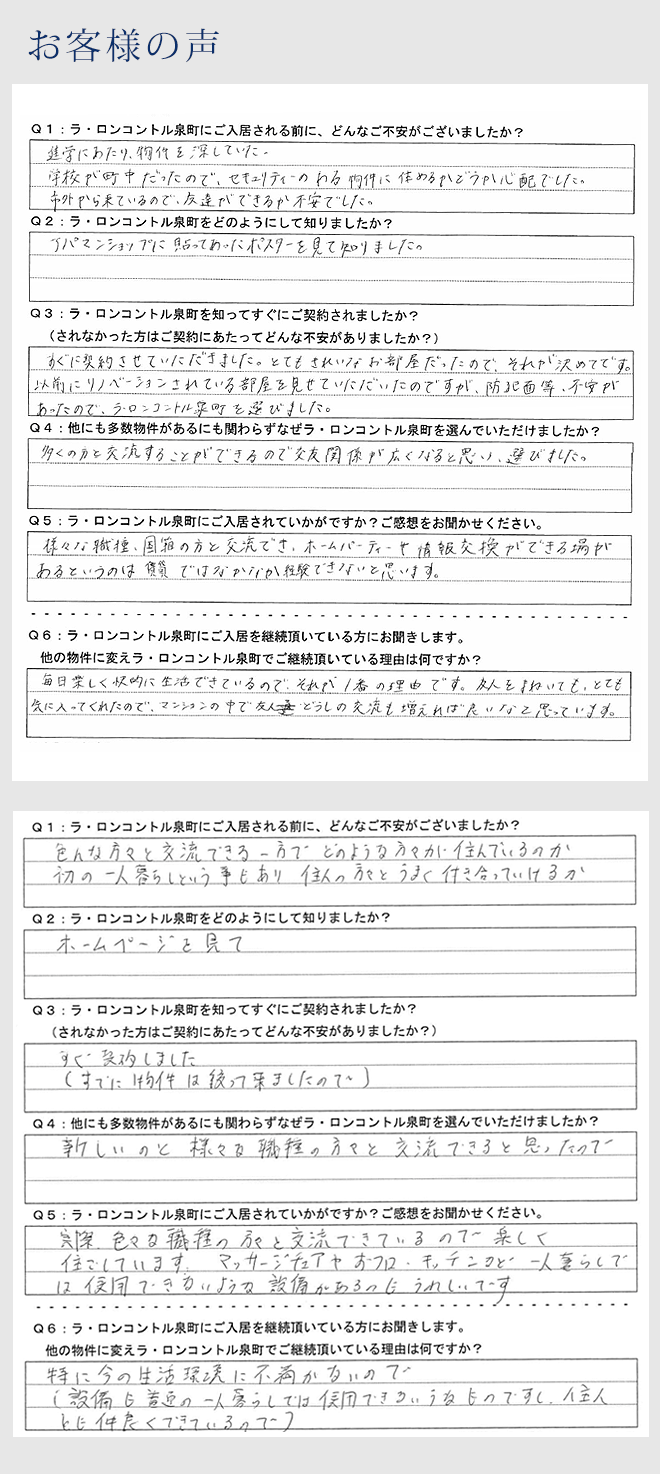 お客様の声
Q1：ラ・ロンコントル泉町にご入居される前に、どんなご不安がございましたか？
進学にあたり、物件を探していた。
学校が町中だったので、セキュリティーのある物件に住めるかどうか心配でした。
市外から来ているので、友達ができるか不安でした。
Q2：ラ・ロンコントル泉町をどのようにして知りましたか？
アパマンショップに貼ってあったポスターを見て知りました。
Q3：ラ・ロンコントル泉町を知ってすぐにご契約されましたか？
（されなかった方はご契約にあたってどんな不安がありましたか？）
すぐに契約させていただきました。とてもきれいなお部屋だったので、それが決めてです。
以前にリノベーションされている部屋を見せていただいたのですが、防犯面等、不安が
あったので、ラ・ロンコントル泉町を選びました。
Q4：他にも多数物件があるにも関わらずなぜラ・ロンコントル泉町を選んでいただけましたか？
多くの方と交流することができるので交友関係が広くなると思い、選びました。
Q5：ラ・ロンコントル泉町にご入居されていかがですか？ご感想をお聞かせください。
様々な職種、国籍の方と交流でき、ホームパーティーや情報交換ができる場が
あるというのは賃貸ではなかなか経験できないと思います。
Q6：ラ・ロンコントル泉町にご入居を継続頂いている方にお聞きします。
他の物件に変えラ・ロンコントル泉町でご継続頂いている理由は何ですか？
毎日楽しく快的に生活できているので、それが1番の理由です。友人をまねいても、とても
気に入ってくれたので、マンションの中で友人どうしの交流も増えれば良いなと思っています。
Q1：ラ・ロンコントル泉町にご入居される前に、どんなご不安がございましたか？
色んな方々と交流できる一方で どのような方々が住んでいるのか
初の一人暮らしという事もあり 住人の方々とうまく付き合っていけるか
Q2：ラ・ロンコントル泉町をどのようにして知りましたか？
ホームページを見て
Q3：ラ・ロンコントル泉町を知ってすぐにご契約されましたか？
（されなかった方はご契約にあたってどんな不安がありましたか？）
すぐ契約しました
（すでに物件は絞って来ましたので）
Q4：他にも多数物件があるにも関わらずなぜラ・ロンコントル泉町を選んでいただけましたか？
新しいのと 様々な職種の方々と交流できると思ったので
Q5：ラ・ロンコントル泉町にご入居されていかがですか？ご感想をお聞かせください。
実際、色々な職種の方々と交流できているので楽しく
住でしています。マッサージチェアやおフロ・キッチンなど 一人暮らしで
は使用できないような設備があるのもうれしいです
Q6：ラ・ロンコントル泉町にご入居を継続頂いている方にお聞きします。
他の物件に変えラ・ロンコントル泉町でご継続頂いている理由は何ですか？
特に今の生活環境に不満がないので
（設備も普通の一人暮らしでは使用できないうなものですし、住人
とも仲良くできているので）